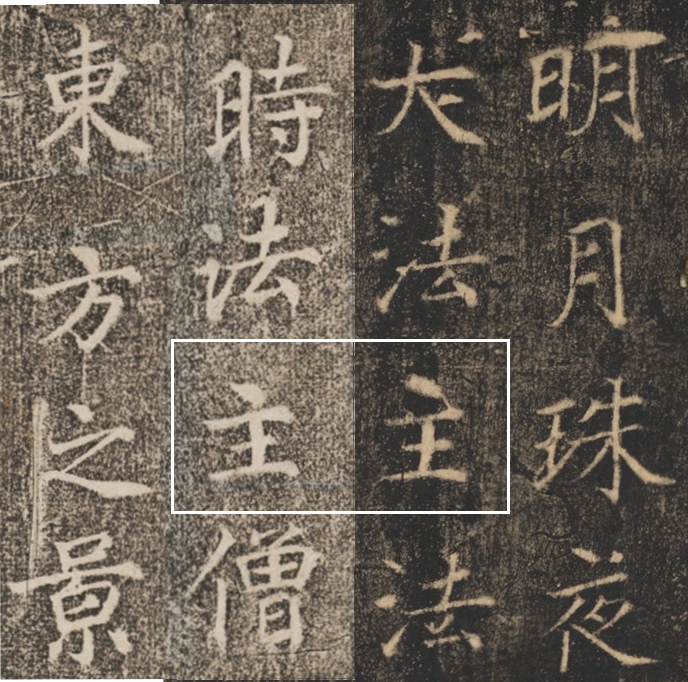 明月珠夜
大法主法
時法主僧
東方之景